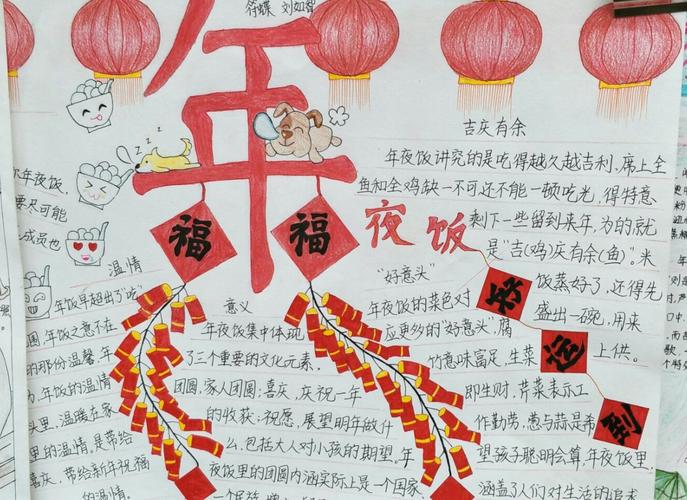 符蝶 刘如智
年
夜饭
福
福
好
运
到
吉庆有余
年夜饭讲究的是吃得越久越吉利,席上全
鱼和全鸡缺一不可还不能一顿吃光,得特意
剩下一些留到来年,为的就
是“吉(鸡)庆有余(鱼)”。米
饭蒸好了,还得先
盛出一碗,用来
上供。
“好意头”
年夜饭的菜色对
应更多的“好意头”,腐
竹意味富足,生菜
即生财,芹菜表示工
作勤劳,葱与蒜是希
望孩子聪明会算,年夜饭里
涵盖了人们对生活的追求
意义
年夜饭集中体现
了三个重要的文化元素。
团圆,家人团圆;喜庆,庆祝一年
的收获;祝愿,展望明年做什
么,包括大人对小孩的期望,年
夜饭里的团圆内涵实际上是一个国家、
年夜饭,
要尽可能
成员也
温情
年饭早超出了“吃”
围,年饭之意不在
的那份温馨,年
为,年饭的温情
头里,温暖在家
里的温情,是带给
喜庆,带给新年祝福
的温情。
zzz